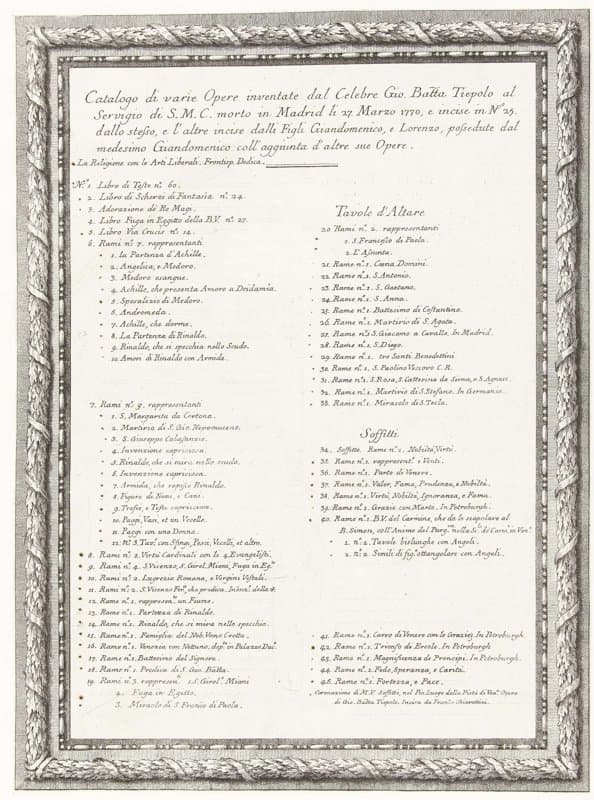 Catalogo di varie Opere inventate dal Celebre Gio. Batta Tiepolo al
Servigio di S. M. C. morto in Madrid li 27. Marzo 1770, e incise in Nº 25.
dallo stesso, e l'altre incise dalli Figli Giandomenico, e Lorenzo, possedute dal
medesimo Giandomenico coll'aggiunta d'altre sue Opere.
La Religione con le Arti Liberali. Frontisp. Dedica.
Nº. 1. Libro di Teste nº. 60.
2. Libro di Scherzi di Fantasia nº. 24.
3. Adorazione de Re Magi.
4. Libro Fuga in Eggitto della B.V. nº. 27.
5. Libro Via Crucis nº. 14.
6. Rami nº. 7. rappresentanti
1. la Partenza d'Achille.
2. Angelica, e Medoro.
3. Medoro esangue.
4. Achille, che presenta Amore a Deidamia.
5. Sposalizio di Medoro.
6. Andromeda.
7. Achille, che dorme.
8. La Partenza di Rinaldo.
9. Rinaldo, che si specchia nello Scudo.
10. Amori di Rinaldo con Armida.
7. Rami nº. 9. rappresentanti
1. S. Margarita da Cortona.
2. Martirio di S. Gio. Nepomuceno.
3. S. Giuseppe Calasanzio.
4. Invenzione capriciosa.
5. Rinaldo, che si mira nello scudo.
6. Invenzione capriciosa.
7. Armida, che rapisse Rinaldo.
8. Figure di Nani, e Cani.
9. Trofei, e Teste capricciose.
10. Paggi, Vasi, et un Vecchio.
11. Paggi con una Donna.
12. nº. 3. Tav. con Sfingi, Pesci, Vecelli, et altro.
8. Rami nº. 2. Virtù Cardinali con le 4. Evangelisti.
9. Rami nº. 4. S. Vicenzo, S. Girol. Miani, Fuga in Eg.
10. Rami nº. 2. Lugrezia Romana, e Vergini Vestali.
11. Rami nº. 2. S. Vicenzo Fer., che predica.
12. Rame nº. 1. rappresen. un Fiume.
13. Rame nº. 1. Partezza di Rinaldo.
14. Rame nº. 1. Rinaldo, che si mira nello specchio.
15. Rame nº. 1. Famiglia del Nob. Vomo Crotta.
16. Rame nº. 1. Venezia con Nettuno, dep. in Palazzo Duc.
17. Rame nº. 1. Battesimo del Signore.
18. Rame nº. 1. Predica di S. Gio. Batta.
19. Rami nº. 3. rappresen. 1. S. Girol. Miani
2. Fuga in Egitto.
3. Miracolo di S. Franco di Paola.
Tavole d'Altare
20. Rami nº. 2. rappresentanti
1. S. Francesco di Paola.
2. L'Assunta.
21. Rame nº. 1. Cæna Domini.
22. Rame nº. 1. S. Antonio.
23. Rame nº. 1. S. Gaetano.
24. Rame nº. 1. S. Anna.
25. Rame nº. 1. Battesimo di Costantino.
26. Rame nº. 1. Martirio di S. Agata.
27. Rame nº. 1. S. Giacomo a Cavallo. In Madrid.
28. Rame nº. 1. S. Diego.
29. Rame nº. 1. tre Santi Benedettini
30. Rame nº. 1. S. Paolino Vescovo C. R.
31. Rame nº. 1. S. Rosa, S. Catterina da Siena, e S. Agnese.
32. Rame nº. 1. Martirio di S. Stefano. In Germania.
33. Rame nº. 1. Miracolo di S. Tecla.
Soffitti
34. Soffitto. Rame nº. 1. Nobiltà, Virtù.
35. Rame nº. 1. rappresent. e Venti.
36. Rame nº. 1. Parto di Venere.
37. Rame nº. 1. Valor, Fama, Prudenza, e Nobiltà.
38. Rame nº. 1. Virtù, Nobiltà, Ignoranza, e Fama.
39. Rame nº. 1. Grazie con Marte. In Petroburgh.
40. Rame nº. 1. B.V. del Carmine, che dà lo scapolare al
B. Simon, coll'Anime del Purg. nella Sc. de Carm. in Ven.
1. nº. 2. Tavole bislunghe con Angeli.
2. nº. 2. Simili di fig. ottangolare con Angeli.
41. Rame nº. 1. Carro di Venere con le Grazie. In Petroburgh.
42. Rame nº. 1. Trionfo de Ercole. In Petroburgh
43. Rame nº. 1. Magnificenza de Prencipi. In Petroburgh.
44. Rame nº. 1. Fede, Speranza, e Carità.
45. Rame nº. 1. Fortezza, e Pace.
Coronazione di M.V. Soffitto, nel Pio Luogo della Pietà di Ven. Opera
di Gio. Batta Tiepolo. Incisa da Franco Chiarottini.